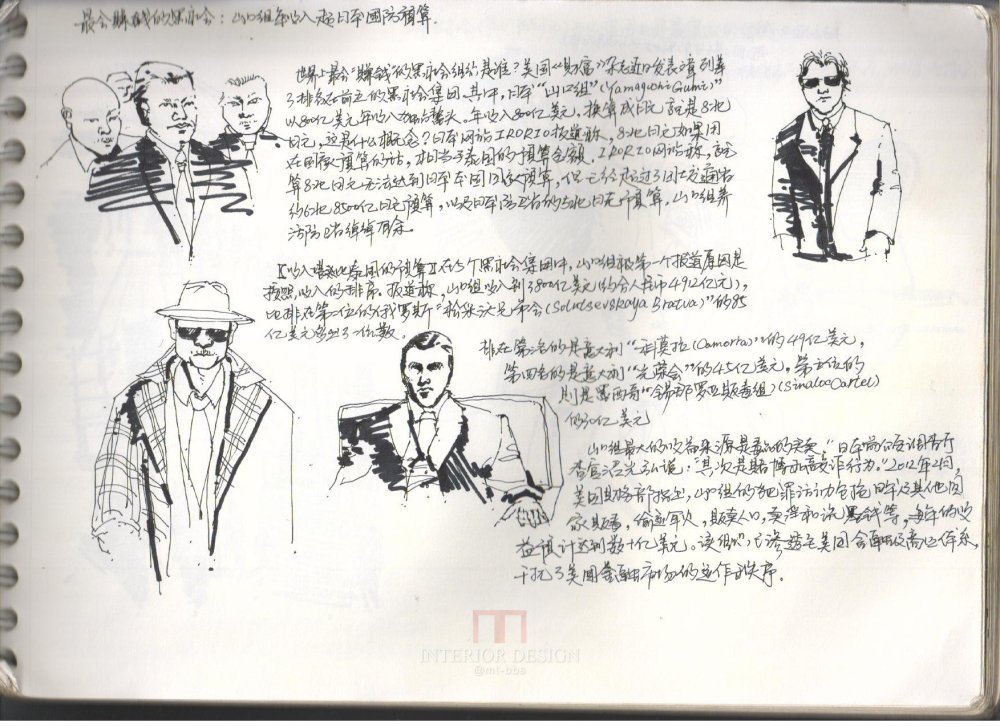 最会赚钱的黑社会：山口组年收入超日本国防预算.
世界上最会“赚钱”的黑社会组织是谁？美国《财富》杂志近日发表谭列举
了排名在前五的黑社会集团，其中，日本“山口组”(Yamaguchi Gumi)”
以800亿美元年收入 年收入800亿美元，换算成日元 就是8兆
日元，这是什么概念？日本网站IRORIO报道称，8兆日元如果用
在国家预算的话，相当于泰国的预算全额，IRORIO网站称，就
算8兆日元无法达到日本本国国家预算，但已经超过了国土交通省
约6兆8500亿日元预算，以及日本防卫省的5兆日元预算，山口组养
活防卫省绰绰有余.
【收入堪比泰国的预算】在5个黑社会集团中，山口组被第一个报道原因是
按照收入的排序，报道称，山口组收入到了800亿美元(约合人民币4912亿元)，
比排在第二位的俄罗斯“松采沃兄弟会(Solntsevskaya Bratva)”的85
亿美元多出了一位数.
排在第三名的是意大利“柯莫拉(Camorra)”的49亿美元，
第四名的是意大利“光荣会”的45亿美元。第五位的
则是墨西哥“锡那罗亚贩毒组”(Sinaloa Cartel)
的30亿美元
山口组最大的收益来源是毒品的买卖，“日本前公安调查厅
查官 光弘说：“其次是赌博和敲诈行为.”2012年2月，
美国财务部指出，山口组的犯罪活动包括日本以及其他国
家贩毒，偷运军火，贩卖人口，卖淫和洗黑钱等，每年的收
益预计达到数十亿美元。该组织”已渗透至美国金融及商业体系，
干扰了美国金融市场的运作秩序.
INTERIOR DESIGN
@mt-bbs